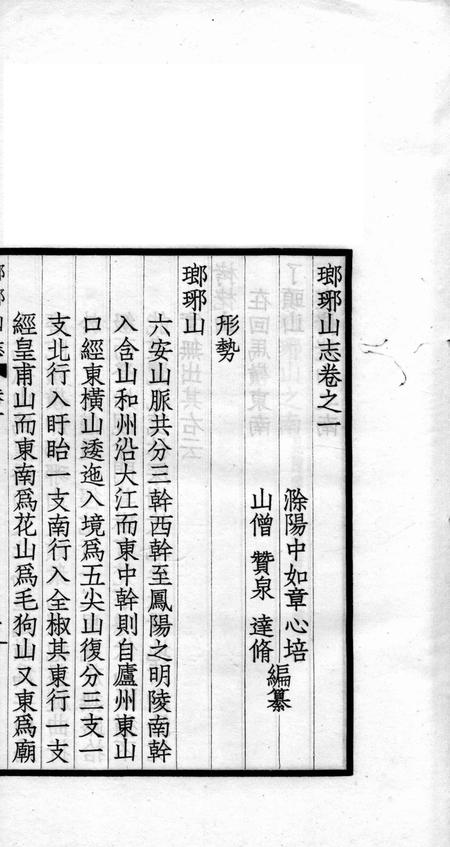 瑯琊山志卷之一
滁陽中如章心培
山僧 贊泉 達脩
編纂
形勢
瑯琊山
六安山脈共分三幹西幹至鳳陽之明陵南幹
入含山和州沿大江而東中幹則自廬州東山
口經東橫山逶迤入境爲五尖山復分三支一
支北行入盱眙一支南行入全椒其東行一支
經皇甫山而東南爲花山爲毛狗山又東爲廟